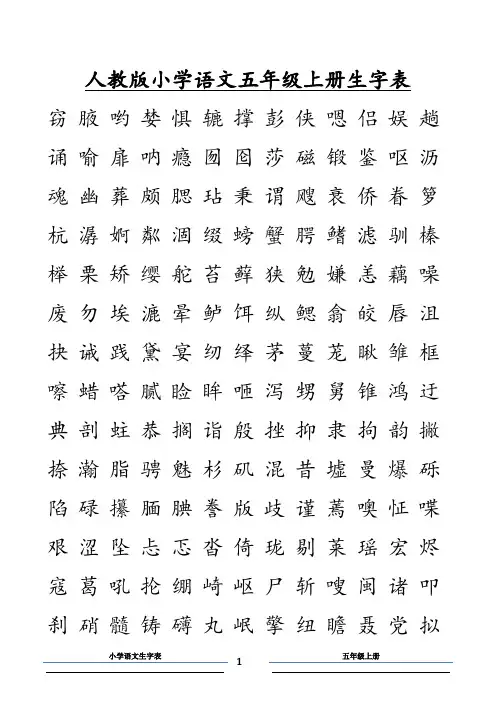 人教版小学语文五年级上册生字表
窃 腋 哟 婪 惧 辘 撑 彭 侠 嗯 侣 娱 趟
诵 喻 扉 呐 瘾 囫 囵 莎 磁 锻 鉴 呕 沥
魂 幽 葬 颇 腮 玷 秉 谓 飕 衰 侨 眷 箩
杭 潺 婀 粼 涸 缀 螃 蟹 腭 鳍 滤 驯 榛
榉 栗 矫 缨 舵 苔 藓 狭 勉 嫌 恙 藕 噪
废 勿 埃 漉 晕 鲈 饵 纵 鳃 翕 皎 唇 沮
抉 诫 践 黛 宴 纫 绎 茅 蔓 茏 瞅 雏 框
嚓 蜡 嗒 腻 睑 眸 咂 泻 甥 舅 锥 鸿 迂
典 剖 蛀 恭 搁 诣 殷 挫 抑 隶 拘 韵 撇
捺 瀚 脂 骋 魅 杉 矶 混 昔 墟 曼 爆 砾
陷 碌 攥 腼 腆 誊 版 歧 谨 蔫 噢 怔 喋
艰 涩 坠 忐 忑 沓 倚 珑 剔 莱 瑶 宏 烬
寇 葛 吼 抡 绷 崎 岖 尸 斩 嗖 闽 诸 叩
刹 硝 髓 铸 礴 丸 岷 擎 纽 瞻 聂 党 拟
小学语文生字表 1 五年级上册